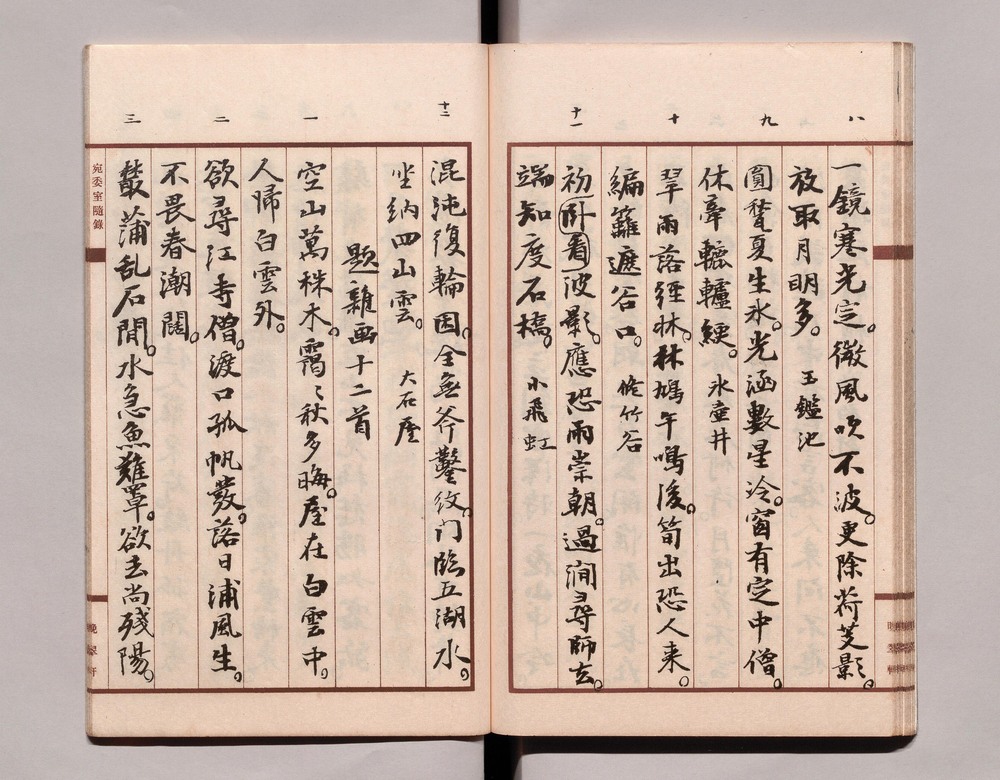 八
一鏡寒光定。微風吹不波。更除荷芰影。
放取月明多。 玉鑑池
九
圓甃夏生氷。光涵數星冷。窗有定中僧。
休牽轆轤綆。 氷壺井
十
翠雨落經牀。林鳩午鳴後。筍出恐人来。
編籬遮谷口。 修竹谷
十一
初臥看波影。應恐雨崇朝。過澗尋師去。
端知度石橋。 小飛虹
十二
混沌復輪囷。全無斧鑿紋。门臨五湖水。
坐納四山雲。 大石屋
題雜画十二首
一
空山萬株木。靄〻秋多晦。屋在白雲中。
人歸白雲外。
二
欲尋江寺僧。渡口孤帆發。落日浦風生。
不畏春潮闊。
三
叢蒲乱石間。水急魚難罩。欲去尚殘陽。
宛委室隨錄
晚翠軒